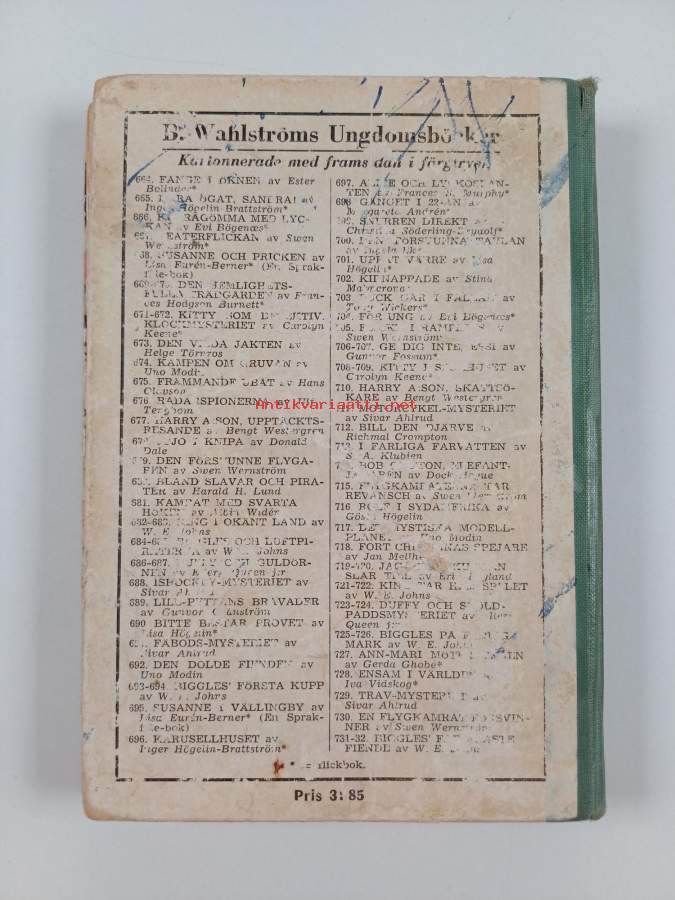 B. Wahlströms Ungdomsböcker
Kartonnerade med framsidan i färgtryck
664. FÅNGE I ÖKNEN av Ester
Bolinder*
665. ÖGAT, SANDRA! av
Inger Högelin-Brattström*
666. KURRAGÖMMA MED LYC-
KAN av Evi Bögenæs*
TEATERFLICKAN av Swen
Wernström*
SUSANNE OCH PRICKEN av
Lisa Eurén-Berner* (En Språk-
fille-bok)
669-670. DEN HEMLIGHETS-
FULLA TRÄDGÅRDEN av Fran-
ces Hodgson Burnett*
671-672. KITTY SOM DETEKTIV.
KLOCKMYSTERIET av Carolyn
Keene*
673. DEN VILDA JAKTEN av
Helge Törnros
674. KAMPEN OM GRUVAN av
Uno Modin
675. FRÄMMANDE UBÅT av Hans
Clavson
676. RÄDA SPIONERNA av
Terghom
677. HARRY A:SON, UPPTÄCKTS-
RESANDE av Bengt Westergren
I KNIPA av Donald
Dale
DEN FÖRSVUNNE FLYGA-
REN av Swen Wernström
BLAND SLAVAR OCH PIRA-
TER av Harald H. Lund
681. KAMRAT MED SVARTA
av Albin Widén
682-683. KING I OKÄNT LAND av
W. E. Johns
BIGGLES OCH LUFTPI-
RATERNA av W. E. Johns
686-687. OCH GULDÖR-
NEN av Ellery Queen jr
688. ISHOCKEY-MYSTERIET av
Sivar Ahlrud
689. LILL-PUTTENS BRAVADER
av Gunvor Håkansström
690. BITTE BESTÅR PROVET av
Lisa Högelin*
FÄBODS-MYSTERIET av
Sivar Ahlrud
692. DEN DOLDE FIENDEN av
Uno Modin
693-694. BIGGLES' FÖRSTA KUPP
av W. E. Johns
695. SUSANNE I VÄLLINGBY av
Lisa Eurén-Berner* (En Språk-
fille-bok)
696. KARUSELLHUSET av
Inger Högelin-Brattström*
697. ANNE OCH LYCKOELEFAN-
TEN av Frances S. Murphy*
698. GÄNGET I 22:AN av
Margareta Andrén*
SNURREN DIREKT av
Christina Söderling-Brydolf*
700. DEN FÖRSVUNNA TAVLAN
av
701. UPP ÅT VÄRRE av Lisa
Högelin*
702. KIDNAPPADE av Stina
Malmcrona
703. PUCK GÅR I FÄLLAN av
Wickers*
FÖR UNG av Evi Bögenæs*
I RAMPLJUS av
Swen Wernström
706-707. GE DIG INTE, av
Gunvor Fossum*
708-709. KITTY I av
Carolyn Keene*
710. HARRY A:SON, SKATTSÖ-
KARE av Bengt Westergren
MOTORCYKEL-MYSTERIET
av Sivar Ahlrud
712. BILL DEN DJÄRVE av
Richmal Crompton
I FARLIGA FARVATTEN av
S. A. Klubien
BOB CLIFTON, ELEFANT-
JÄGAREN av Dock Hogue
715. FLYGKAMRATERNA TAR
REVANSCH av Swen Wernström
716. ROLF I SYDAFRIKA av
Gösta Högelin
717. DET MYSTISKA MODELL-
PLANET av Uno Modin
718. FORT CHRISTINAS SPEJARE
av Jan Mellin
719-720.
SLÅR TILL av
721-722. KING TAR HEM SPELET
av W. E. Johns
723-724. DUFFY OCH SKÖLD-
PADDSMYSTERIET av Ellery
Queen jr
725-726. BIGGLES PÅ
MARK av W. E. Johns
727. ANN-MARI MOT
av Gerda Ghobé*
728. ENSAM I VÄRLDEN av
Iva Vidskog*
729. TRAV-MYSTERIET av
Sivar Ahlrud
730. EN FLYGKAMRAT FÖRSVIN-
NER av Swen Wernström
731-32. BIGGLES' FARLIGASTE
FIENDE av W. E. Johns
* = Flickbok.
Pris 3:85
Antikvariaatti.net